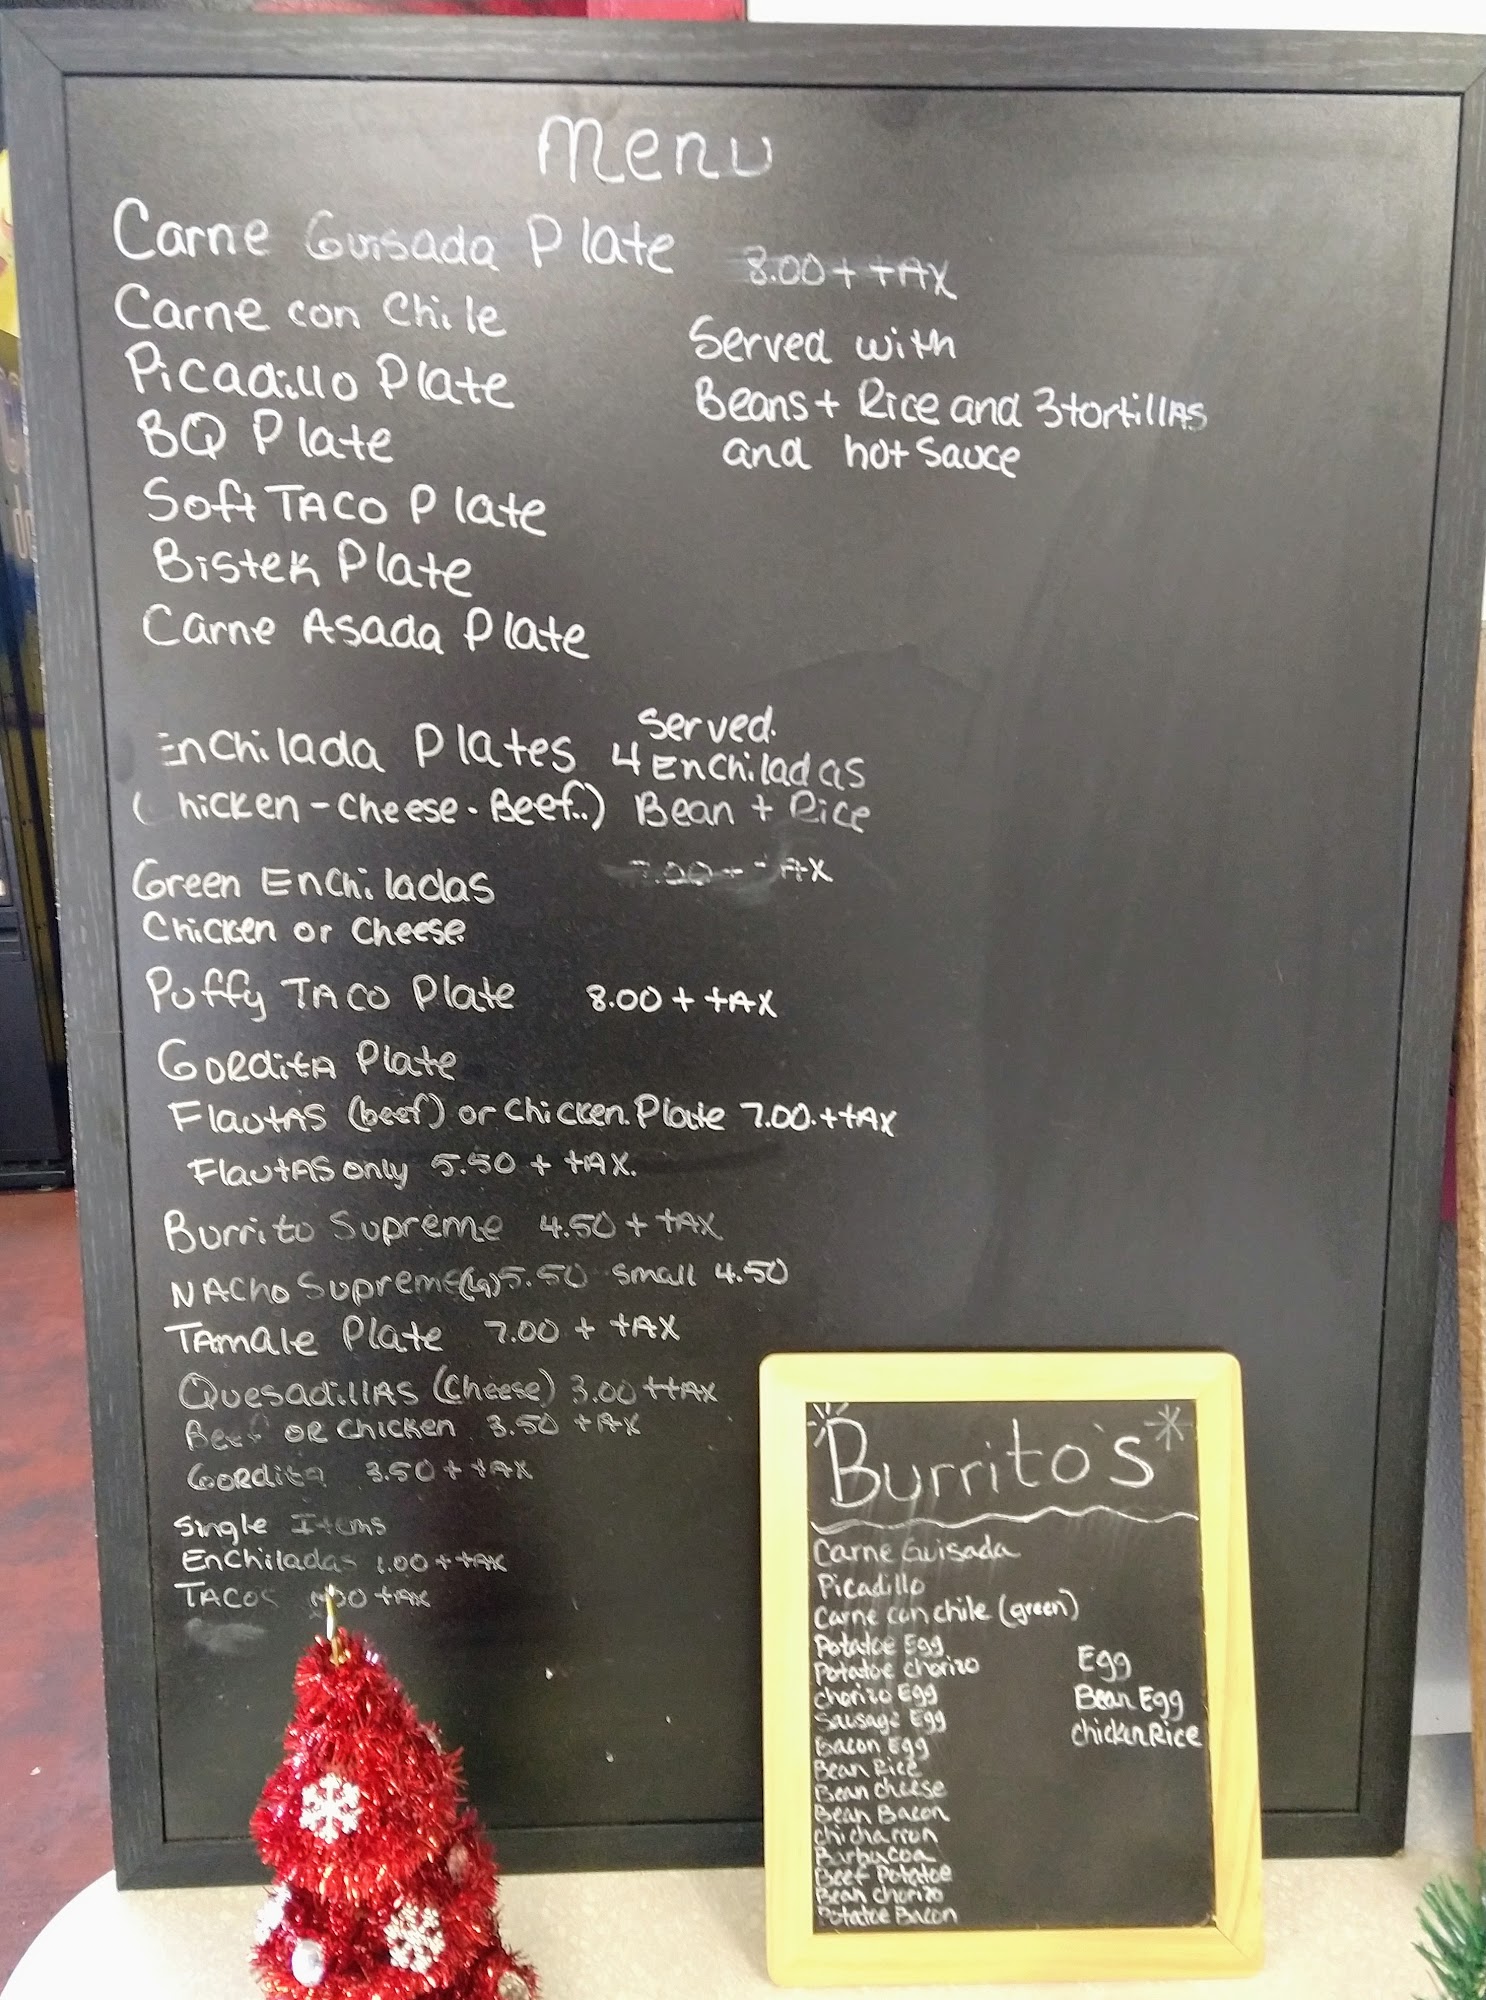 Menu
Carne Guisada Plate 8.00 + tAX
Carne con Chile
Served with
Picadillo Plate
Beans + Rice and 3 tortillAS
BQ Plate
and hot Sauce
Soft TACO Plate
Bistek Plate
Carne Asada Plate
Enchilada Plates
Served.
4 Enchiladas
(hicken - Cheese - Beef..) Bean + Rice
Green Enchiladas
AX
Chicken or Cheese
Puffy TACO Plate 8.00 + tAX
GORditA Plate
FlautAS (beef) or Chicken. Plate 7.00. + tAX
FlautAS only 5.50 + tAX.
Burrito Supreme 4.50 + tAX
NACHO Supreme (lg) 5.50 small 4.50
TAmale Plate 7.00 + tAX
QuesadillAS (Cheese) 3.00 + tAX
Beef OR Chicken 3.50 + tAX
GORditA 3.50 + tAX
Single Items
Enchiladas 1.00 + tAX
TACOS + tAX
Burrito's
Carne Guisada
Picadillo
Carne con chile (green)
Potatoe Egg
Potatoe chorizo
chorizo Egg
Sausage Egg
Bacon Egg
Bean Rice
Bean cheese
Bean Bacon
chicharron
Barbacoa
Beef Potatoe
Bean chorizo
Potatoe Bacon
Egg
Bean Egg
chicken Rice